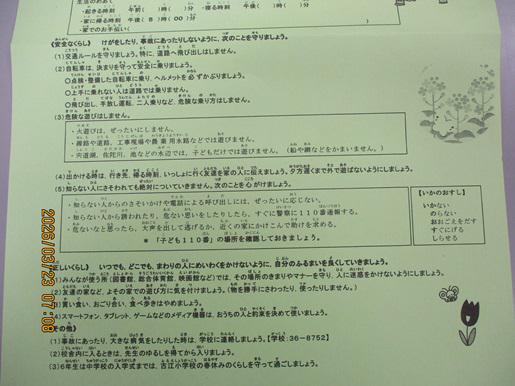 生活のめあて
・起きる時刻 午前( )時( )分 ・寝る時刻 午後( )時( )分
・家に帰る時刻 午後( 8 )時( 00 )分
・家でのお手伝い(
《安全なくらし》 けがをしたり、事故にあったりしないように、次のことを守りましょう。
(1)交通ルールを守りましょう。特に、道路へ飛び出しはしません。
(2)自転車は、決まりを守って安全に乗りましょう。
○点検・整備した自転車に乗り、ヘルメットを必ずかぶりましょう。
○上手に乗れない人は道路では乗りません。
○飛び出し、手放し運転、二人乗りなど、危険な乗り方はしません。
(3)危険な遊びはしません。
・火遊びは、ぜったいにしません。
・線路や道路、工事現場や農業用水路などでは遊びません。
・宍道湖、佐陀川、池などの水辺では、子どもだけでは遊びません。 (船や網などをかまいません。)
(4)出かける時は、行き先、帰る時刻、いっしょに行く友達を家の人に伝えましょう。夕方遅くまで外で遊ばないようにしましょう。
(5)知らない人にさそわれても絶対についていきません。次のことを心がけましょう。
・知らない人からのさそいかけや電話による呼び出しには、ぜったいに応じない。
・知らない人から誘われたり、危ない思いをしたりしたら、すぐに警察に110番通報する。
・危ないなと思ったら、大声を出して逃げるか、近くの家にかけこんで助けを求める。
※「子ども110番」の場所を確認しておきましょう。
【いかのおすし】
いかない
のらない
おおごえをだす
すぐにげる
しらせる
正しいくらし》 いつでも、どこでも、まわりの人にめいわくをかけないように、自分のふるまいを良くしていきましょう。
(1)みんなが使う所(図書館、総合体育館、映画館など)では、その場所のきまりやマナーを守り、人に迷惑をかけないようにしましょう。
(2)友達の家など、よその家での遊び方に気を付けましょう。(物を勝手にさわったり、使ったりしません。)
(3)買い食い、おごり合い、食べ歩きはやめましょう。
(4)スマートフォン、タブレット、ゲームなどのメディア機器は、おうちの人と約束を決めて使いましょう。
その他》
(1)事故にあったり、大きな病気をしたりした時は、学校に連絡しましょう。【学校:36-8752】
(2)校舎内に入るときは、先生のゆるしを得てから入りましょう。
(3)6年生は中学校の入学式までは、古江小学校の春休みのくらしを守って過ごしましょう。
2026/03/23 07:08